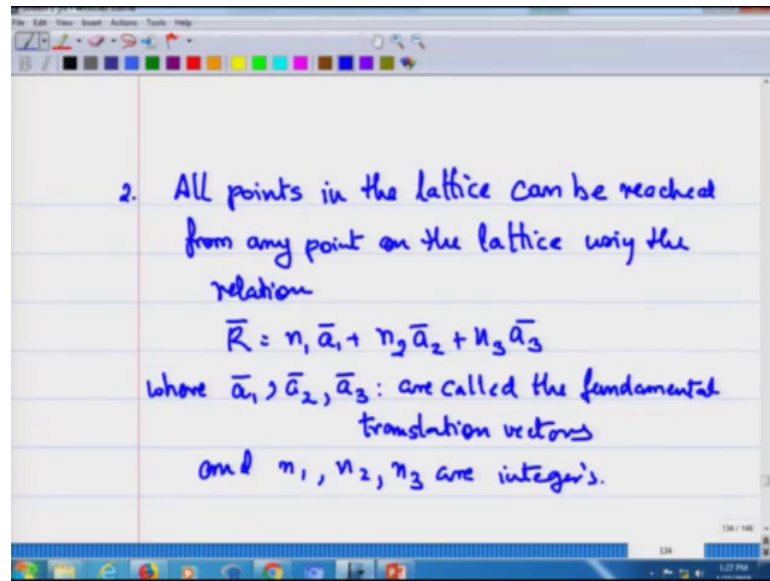 File Edit View Insert Actions Tools Help
2. All points in the lattice can be reached
from any point on the lattice using the
relation
R̄ = n₁ ā₁ + n₂ ā₂ + n₃ ā₃
where ā₁, ā₂, ā₃ : are called the fundamental
translation vectors
and n₁, n₂, n₃ are integer's.
134 / 146
134
1:27 PM